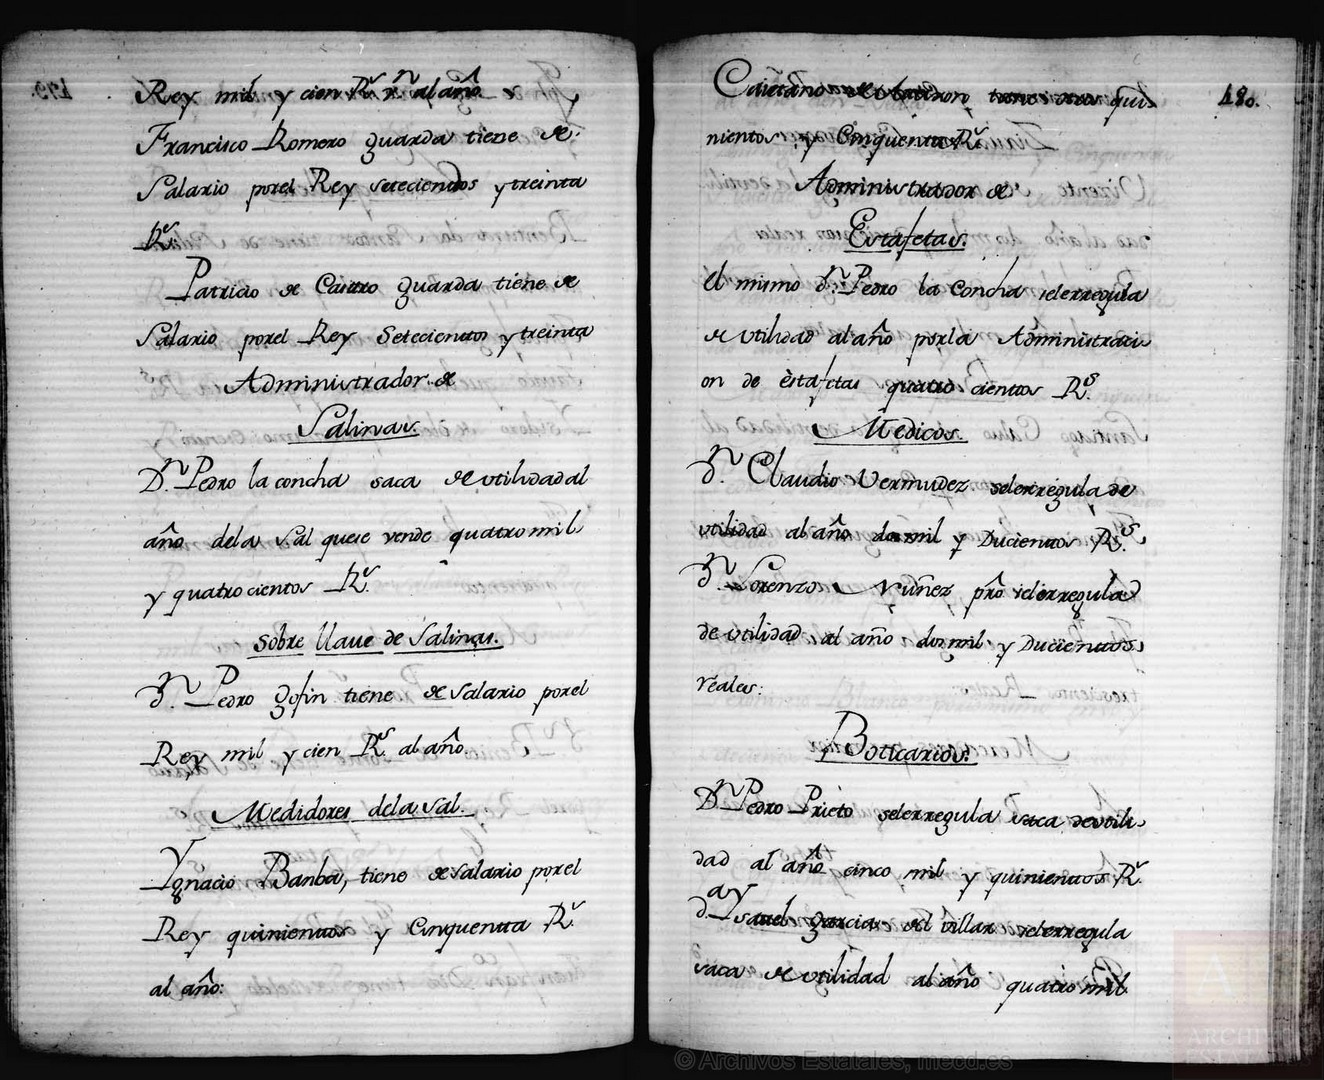 Rey mil y cien R.s v.n al año
Francisco Romero guarda tiene de
Salario porel Rey setecientos y treinta
R.s
Patricio de Castro guarda tiene de
Salario porel Rey Setecientos y treinta
Administrador de
Salinas.
D.n Pedro la concha saca de utilidad al
año dela Sal que se vende quatro mil
y quatrocientos R.s
Sobre llaue de Salinas.
D.n Pedro gofin tiene de salario porel
Rey mil y cien R.s al año.
Medidores dela sal.
Ygnacio Banba, tiene de salario porel
Rey quinientos y Cinquenta R.s
al año:
480.
Caietano tiene otros qui-
nientos y Cinquenta R.s
Administrador de
Estafetas:
el mismo d.n Pedro la Concha selerregula
de utilidad al año porla Administraci-
on de estafetas quatro cientos R.s
Medicos.
d.n Claudio Vermudez selerregula de
utilidad al año dosmil y Ducientos R.s
d.n Lorenzo Nuñez pro selerregula
de utilidad al año dosmil y Ducientos
reales:
Boticarios.
D.n Pedro Prieto selerregula saca deutili-
dad al año cinco mil y quinientos R.s
d.ay Ysauel garcia del villar selerregula
saca de utilidad al año quatro mil
© Archivos Estatales, mecd.es
ARCHIVOS
ESTATALES